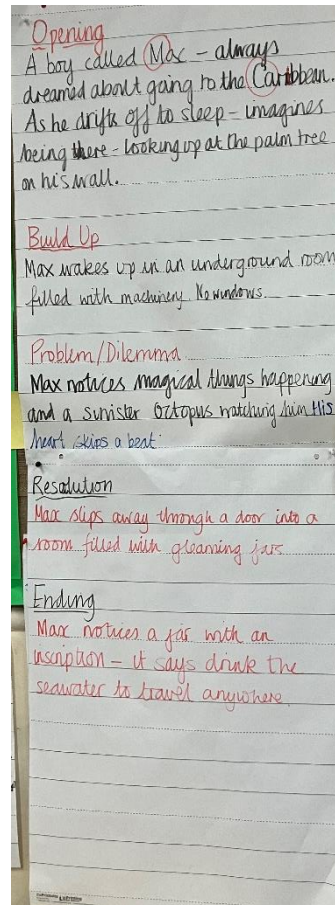 Opening
A boy called Max – always
dreamed about going to the Caribbean.
As he drifts off to sleep – imagines
being there – looking up at the palm tree
on his wall.
Build Up
Max wakes up in an underground room
filled with machinery. No windows.
Problem/Dilemma
Max notices magical things happening
and a sinister octopus watching him His
heart skips a beat.
Resolution
Max slips away through a door into a
room filled with gleaming jars
Ending
Max notices a jar with an
inscription – it says drink the
seawater to travel anywhere.